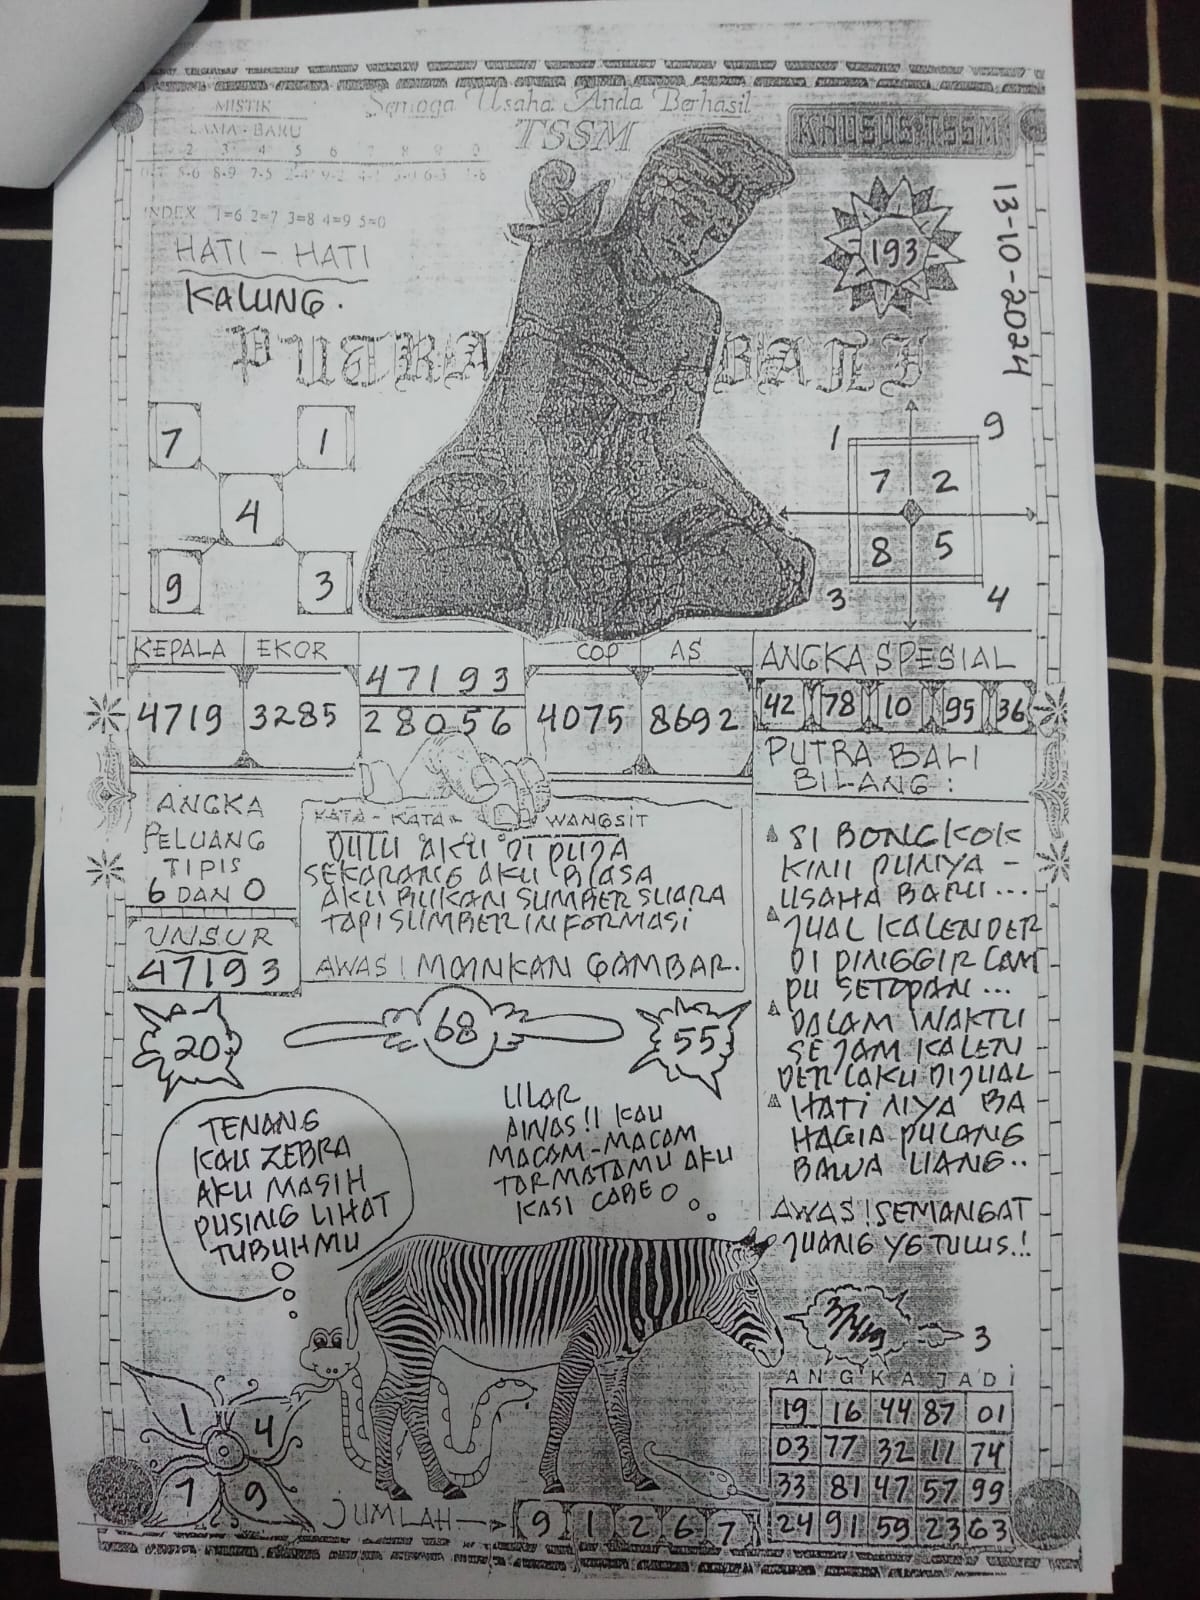 Semoga Usaha Anda Berhasil
TSSM
KHUSUS TSSM
MISTIK
LAMA - BARU
2 3 4 5 6 7 8 9 0
8-9 7-5
INDEX 1=6 2=7 3=8 4=9 5=0
HATI - HATI
KALUNG.
193
13-10-2024
PUTRA BALI
7 1
4
9 3
1 9
7 2
8 5
3 4
KEPALA EKOR COP AS
47193
4719 3285 28056 4075 8692
ANGKA SPESIAL
42 78 10 95 36
ANGKA
PELUANG
TIPIS
6 DAN 0
UNSUR
47193
KATA - KATA WANGSIT
DULU AKU DI PUJA
SEKARANG AKU BIASA
AKU BUKAN SUMBER SUARA
TAPI SUMBER INFORMASI
AWAS! MAINKAN GAMBAR.
PUTRA BALI
BILANG :
SI BONGKOK
KINI PUNYA -
USAHA BARU ...
JUAL KALENDER
DI PINGGIR LAM
PU SETOPAN ...
DALAM WAKTU
SEJAM KALEN
DER LAKU DIJUAL
HATI NYA BA
HAGIA PULANG
BAWA UANG..
AWAS! SEMANGAT
JUANG YG TULUS.!!
20
68
55
TENANG
KAU ZEBRA
AKU MASIH
PUSING LIHAT
TUBUHMU
ULAR
AWAS!! KAU
MACAM-MACAM
TAR MATAMU AKU
KASI CABE
3
ANGKA JADI
19 16 44 87 01
03 77 32 11 74
33 81 47 57 99
24 91 59 23 63
1 4
7 9
JUMLAH
9 1 2 6 7